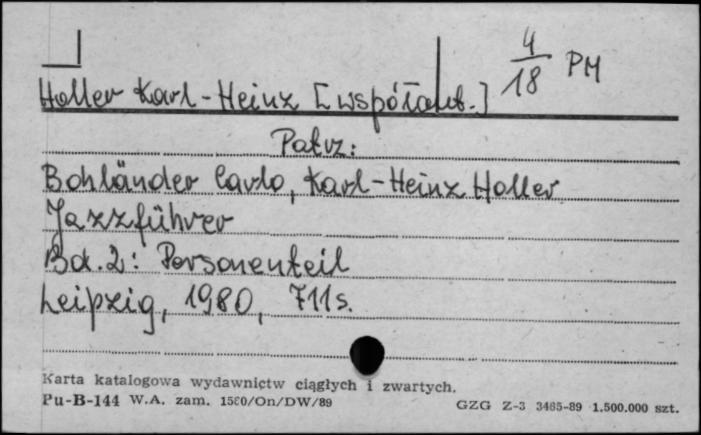 4/18 PM
Holler Karl-Heinz [współaut.]
Patrz:
Bohländer Carlo, Karl-Heinz Holler
Jazzführer
Bd. 2: Personenteil
Leipzig, 1980, 711s.
Karta katalogowa wydawnictw ciągłych i zwartych.
Pu-B-144 W.A. zam. 1580/On/DW/89 GZG Z-3 3465-89 1.500.000 szt.